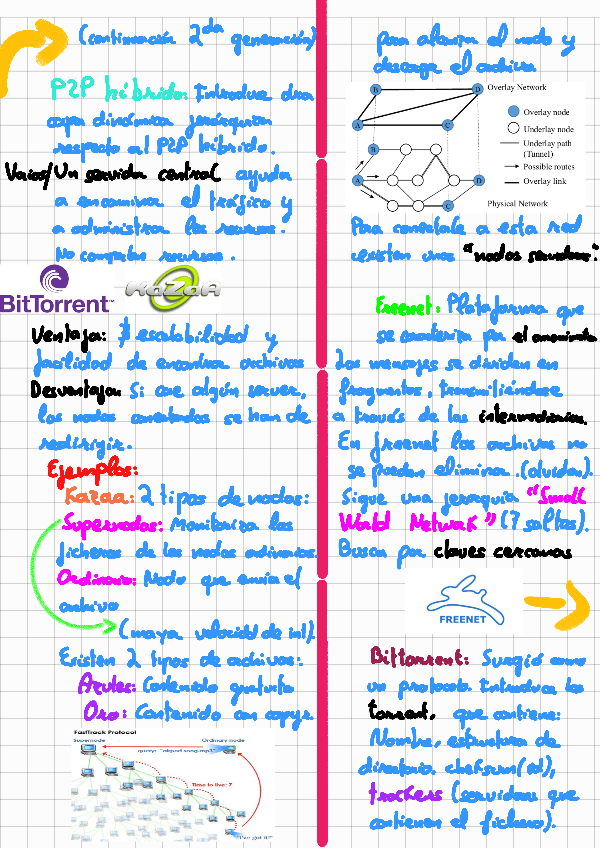 (continuación 2da generación)
P2P híbrido: Introduce una
capa dinámica jerárquica
respecto al P2P híbrido.
Varios/Un servidor central ayuda
a encaminar el tráfico y
a administrar los recursos.
No comparten recursos.
BitTorrent™
KaZaA
Ventaja: escalabilidad y
facilidad de encontrar archivos
Desventaja: Si cae algún server,
los nodos conectados se han de
redirigir.
Ejemplos:
Kazaa: 2 tipos de nodos:
Supernodos: Monitoriza los
ficheros de los nodos ordinarios.
Ordinario: Nodo que envía el
archivo
(mayor velocidad de int).
Existen 2 tipos de archivos:
Azules: Contenido gratuito
Oro: Contenido con copyr.
FastTrack Protocol
Supernode
Ordinary node
query: "abjpod song.mp3"
Time to live: 7
"I've got it!"
para alcanzar el nodo y
descargar el archivo
Overlay Network
B
D
A
C
B
A
D
C
Overlay node
Underlay node
Underlay path
(Tunnel)
Possible routes
Overlay link
Physical Network
Para conectarte a esta red
existen unos "nodos servidores".
Freenet: Plataforma que
se caracteriza por el anonimato
Los mensajes se dividen en
fragmentos, transmitiéndose
a través de los intermediarios.
En freenet los archivos no
se pueden eliminar. (olvidar).
Sigue una jerarquía "Small
World Network" (7 saltos).
Buscan por claves cercanas
FREENET
Bittorrent: Surgió como
un protocolo. Introduce los
torrent, que contiene:
Nombre, estructura de
directorio. checksum(id),
trackers (servidores que
contienen el fichero).